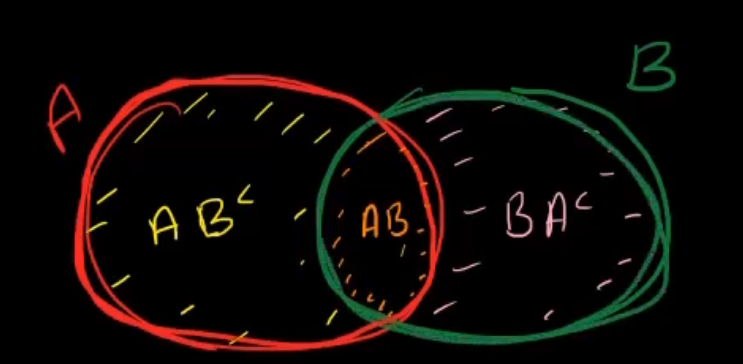 A
B
ABᶜ
AB
BAᶜ